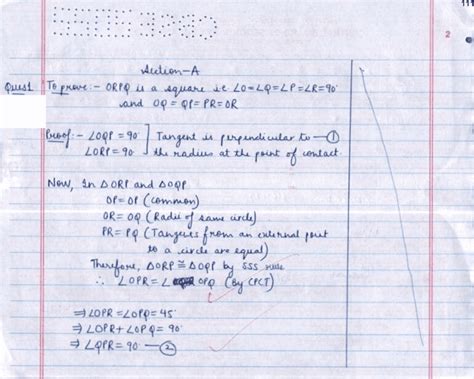 2
Section-A
Ques1 To prove:- ORPQ is a square i.e ∠O=∠Q=∠P=∠R=90°
and OQ = QP=PR=OR
Proof:- ∠OQP = 90° ] Tangent is perpendicular to —①
∠ORP = 90° the radius at the point of contact.
Now, In △ORP and △OQP
OP=OP (common)
OR = OQ (Radii of same circle)
PR= PQ (Tangents from an external point
to a circle are equal)
Therefore, △ORP ≅ △OQP by SSS rule
∴ ∠OPR = ∠ OPQ (by CPCT)
⇒ ∠OPR = ∠OPQ = 45°
⇒ ∠OPR + ∠OPQ = 90°
⇒ ∠QPR = 90° —②